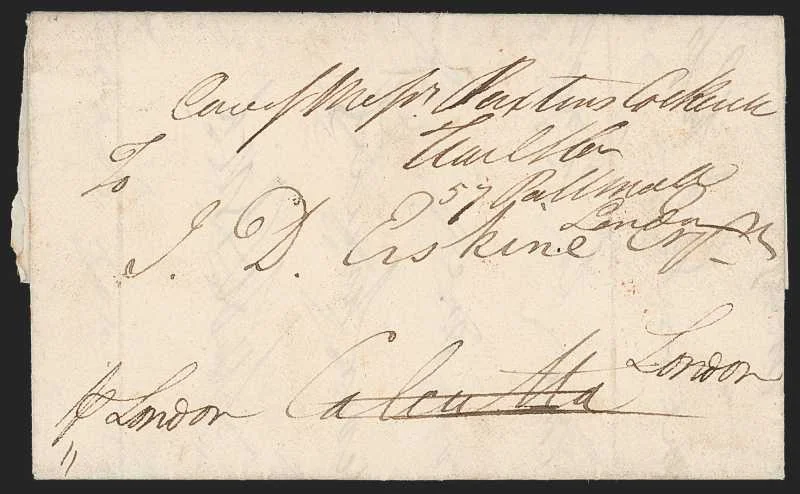 Care of Messrs. Paxtons Cockerell
Trail &Co
To
57 Pallmall
London
J. D. Erskine Esqr.
London
pr London Calcutta